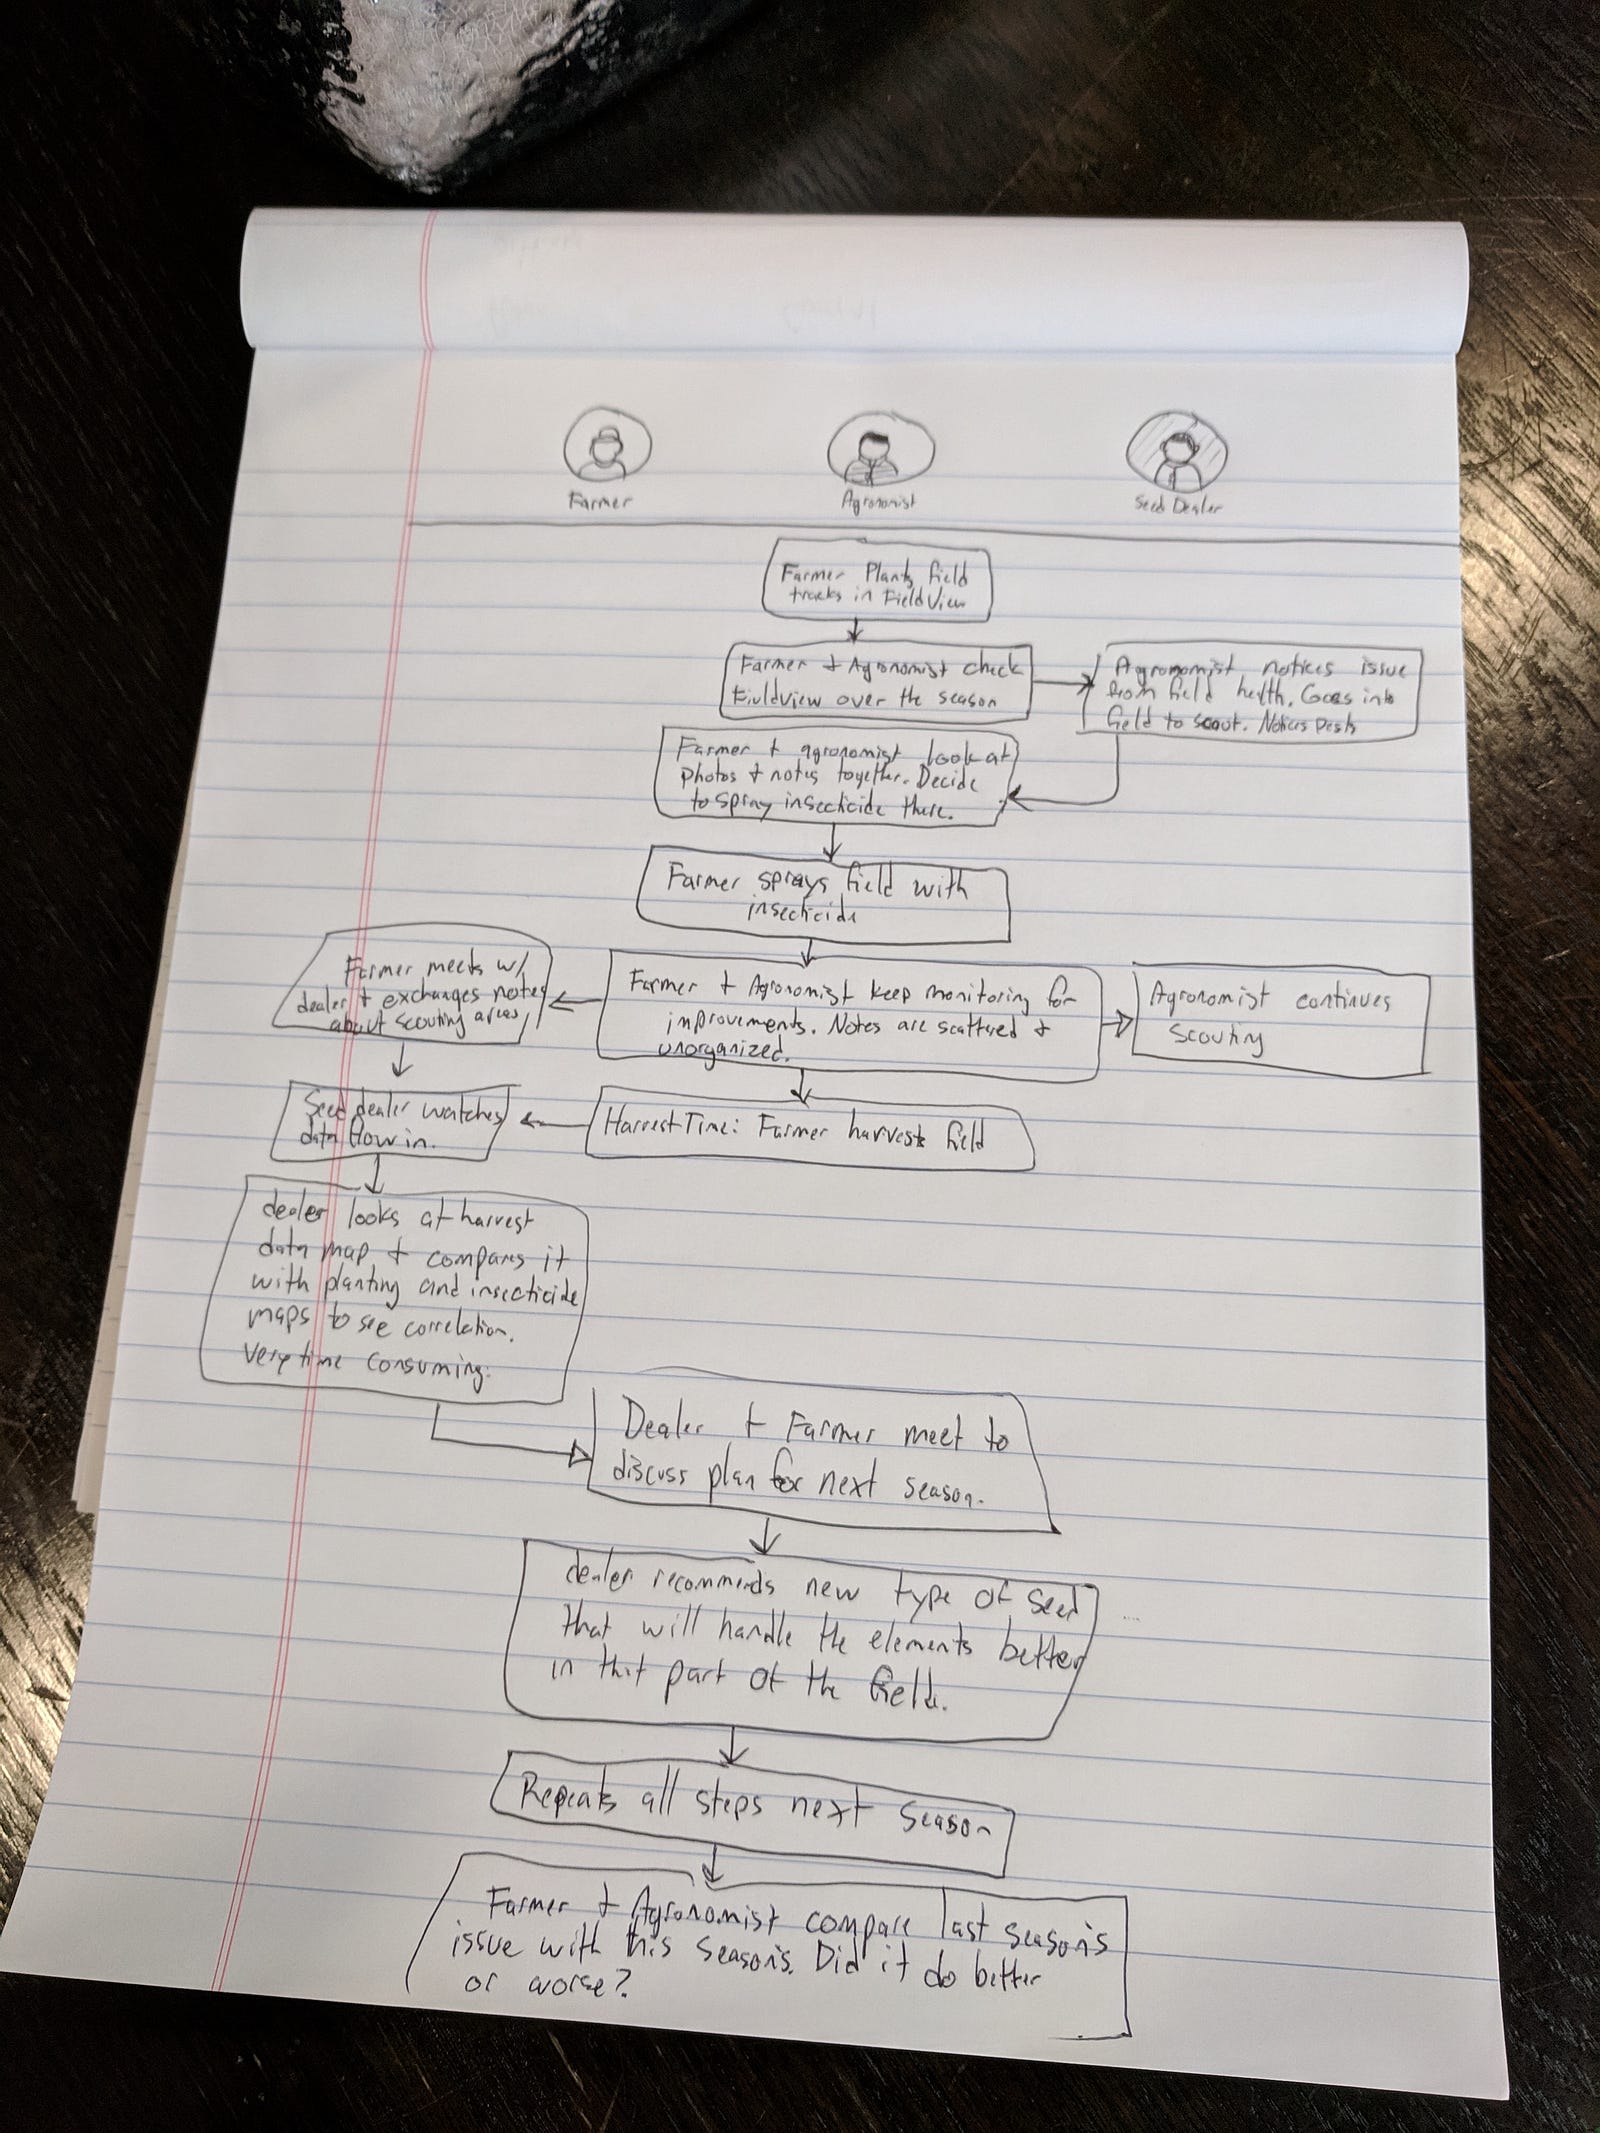 Farmer
Agronomist
Seed Dealer
Farmer Plants field
tracks in FieldView
Farmer + Agronomist check
Fieldview over the season
Agronomist notices issue
from field health. Goes into
field to scout. Notices pests
Farmer + agronomist look at
photos + notes together. Decide
to spray insecticide there.
Farmer sprays field with
insecticide
Farmer meets w/
dealer + exchanges notes
about scouting areas
Farmer + Agronomist keep monitoring for
improvements. Notes are scattered +
unorganized.
Agronomist continues
scouting
Seed dealer watches
data flow in.
Harvest Time: Farmer harvests field
dealer looks at harvest
data map + compares it
with planting and insecticide
maps to see correlation.
Very time consuming.
Dealer + Farmer meet to
discuss plan for next season.
dealer recommends new type of seed
that will handle the elements better
in that part of the field.
Repeats all steps next season
Farmer + Agronomist compare last season's
issue with this season's. Did it do better
or worse?